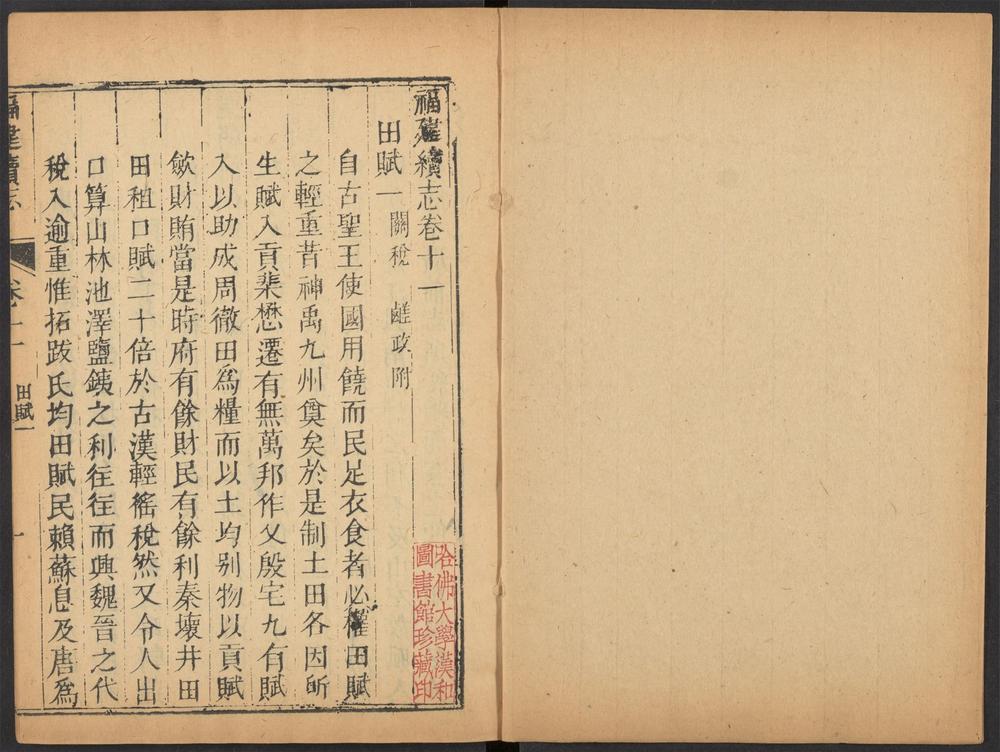 福建續志卷十一
田賦一 關稅 鹾政附
自古聖王使國用饒而民足衣食者必權田賦
之輕重昔神禹九州奠矣於是制土田各因所
生賦入貢棐懋遷有無萬邦作乂殷宅九有賦
入以助成周徹田爲糧而以土均别物以貢賦
斂財賄當是時府有餘財民有餘利秦壞井田
田租口賦二十倍於古漢輕徭稅然又令人出
口算山林池澤鹽鐵之利往往而興魏晉之代
稅入逾重惟拓跋氏均田賦民賴蘇息及唐爲
福建續志
卷十一
田賦一
一
哈佛大學漢和
圖書館珍藏印